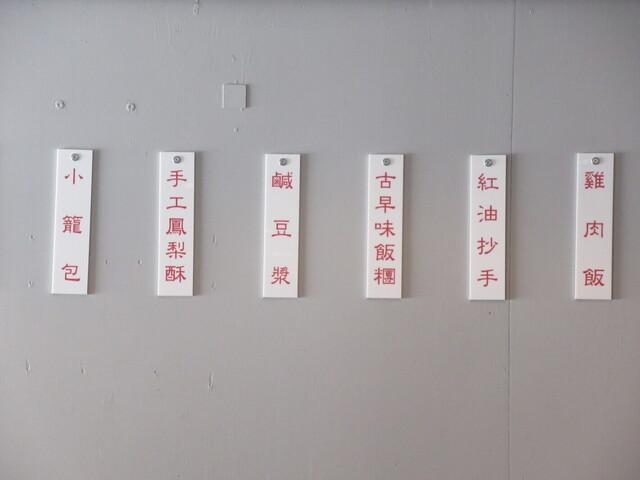 小籠包
手工鳳梨酥
鹹豆漿
古早味飯糰
紅油抄手
雞肉飯